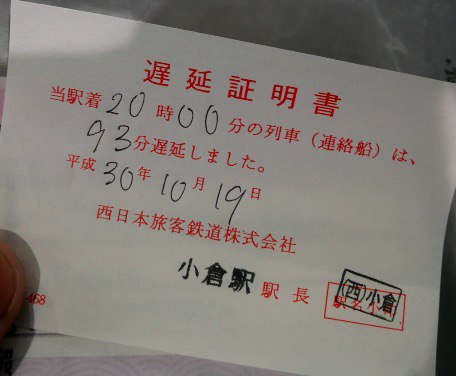 遅延証明書
当駅着20時00分の列車（連絡船）は、
93分遅延しました。
平成30年10月19日
西日本旅客鉄道株式会社
小倉駅駅長
(西)小倉
468